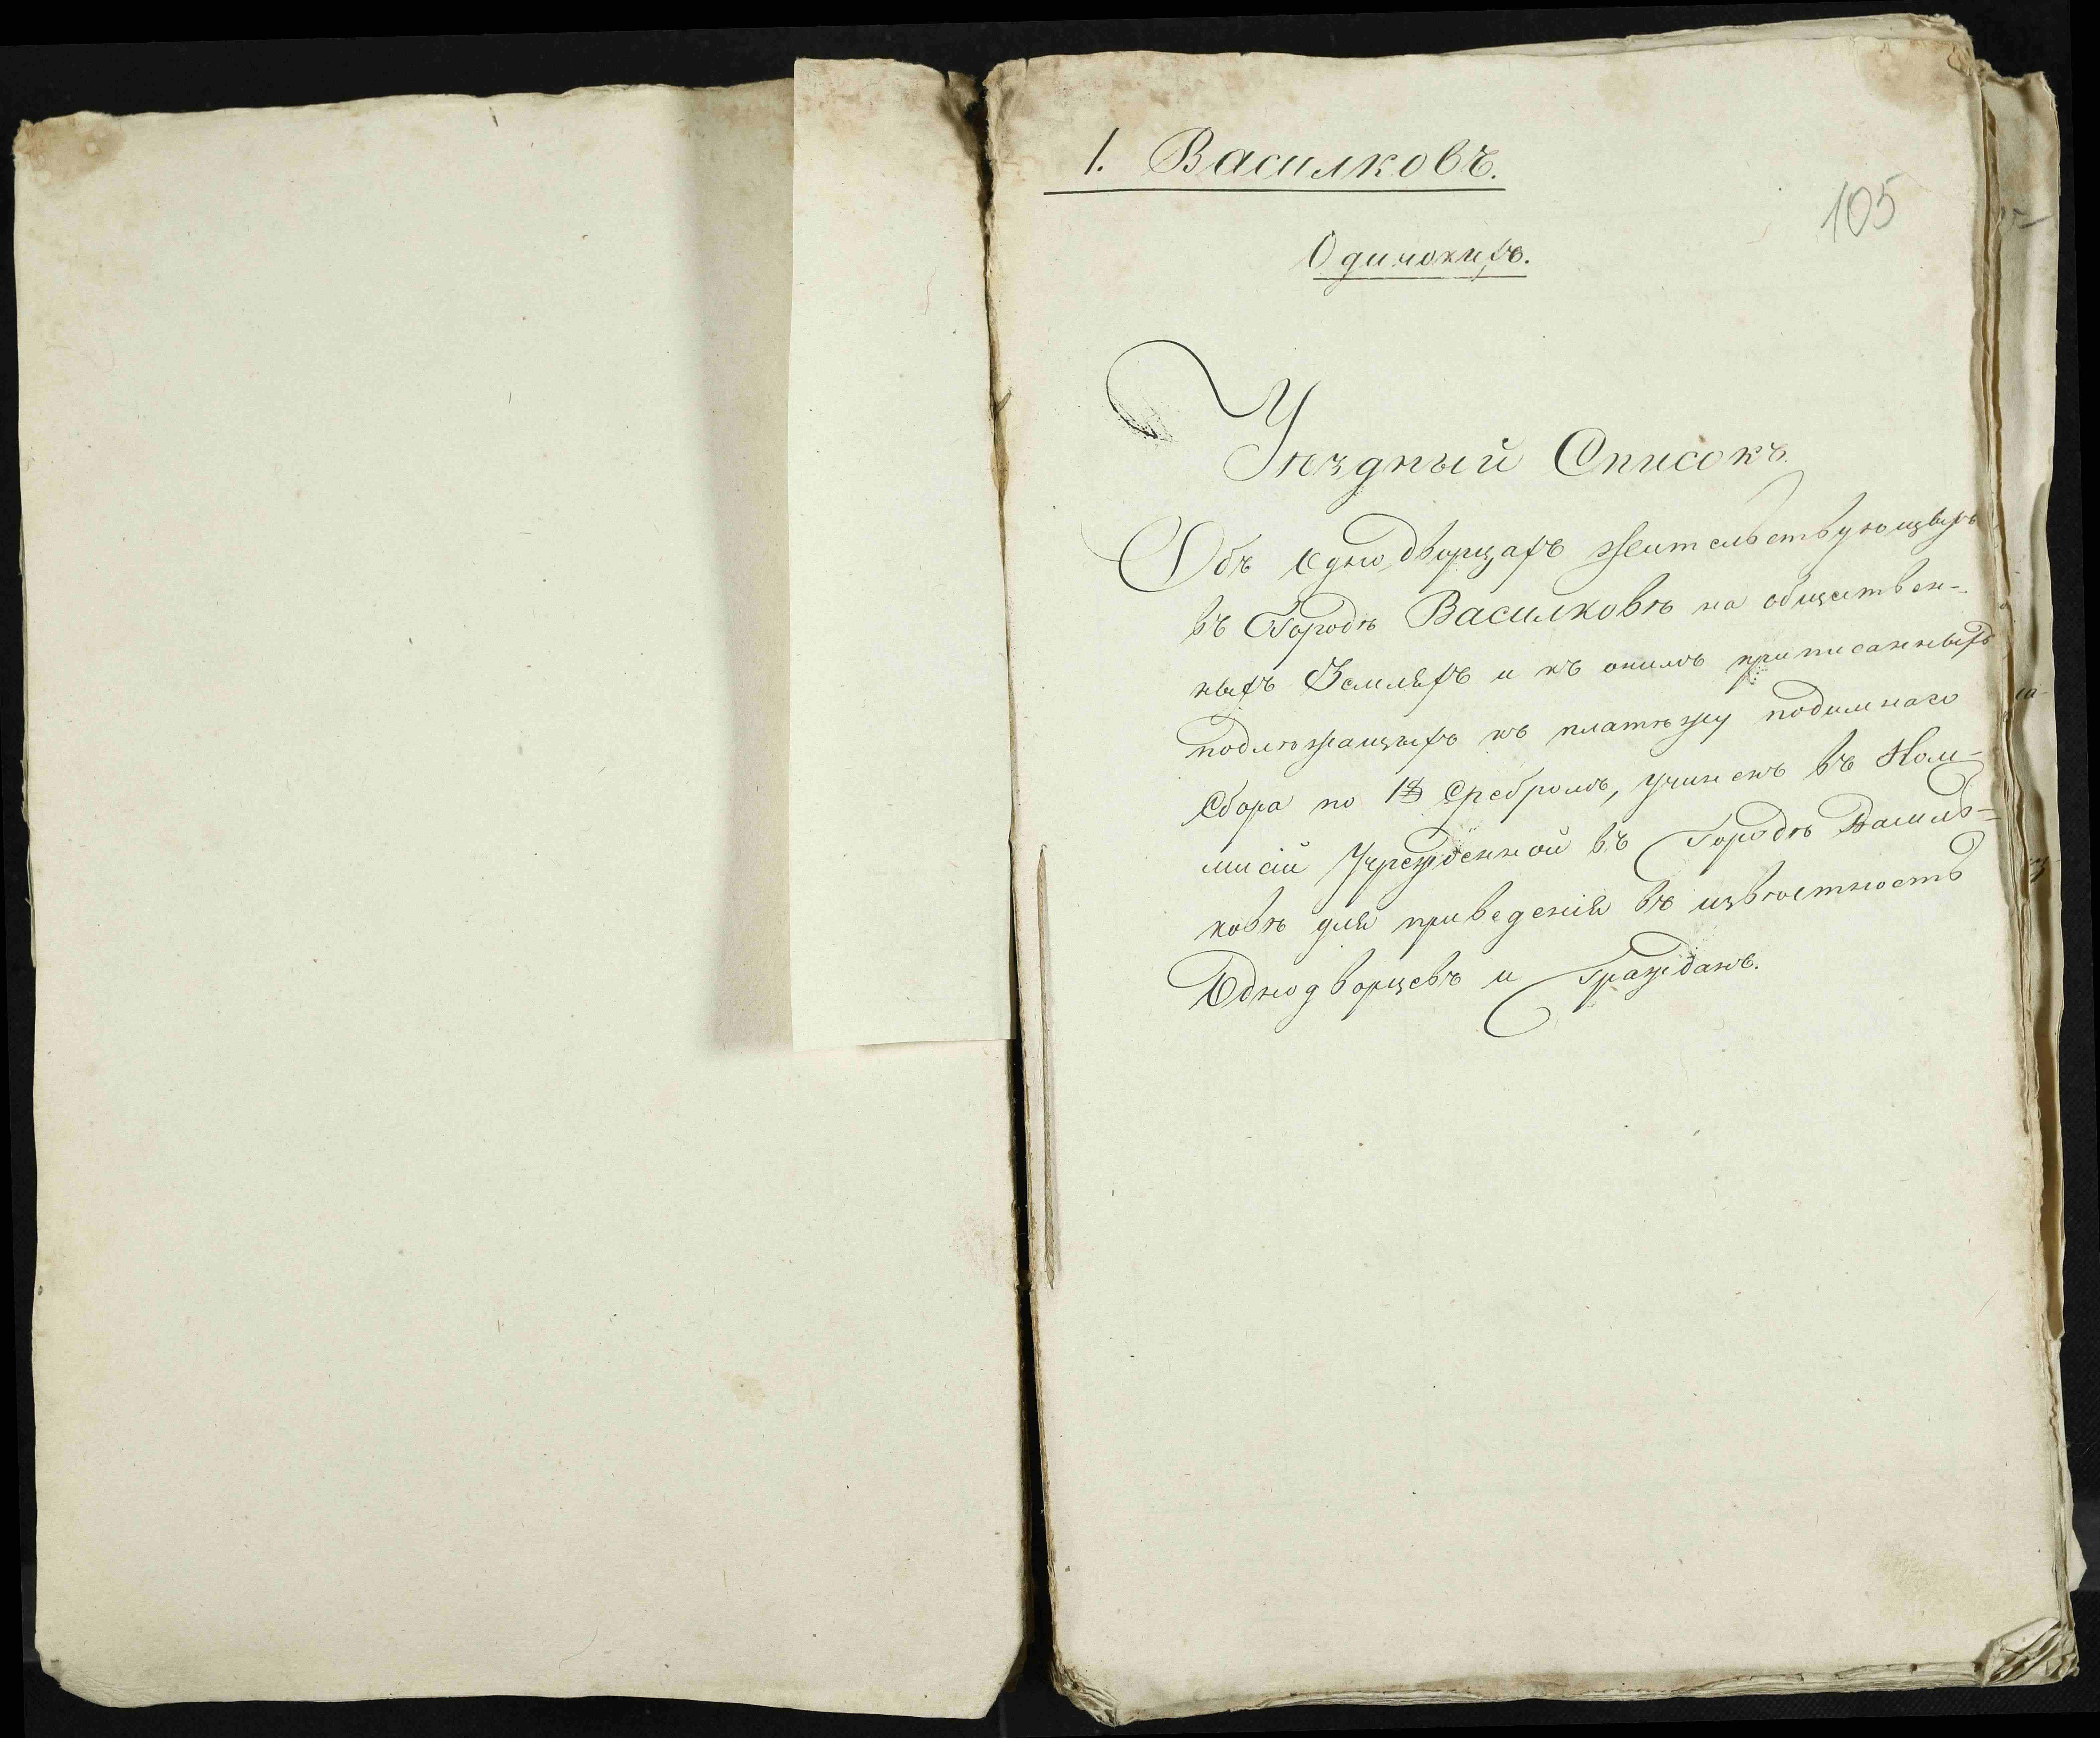 1. Василковъ.
105
Одинокихъ.
Уѣздный Списокъ
Объ Однодворцахъ жительствующихъ
въ Городѣ Василковѣ на обществен-
ныхъ Земляхъ и къ онымъ приписанныхъ
подлѣжащихъ къ платѣжу подымнаго
Сбора по 1 Сребромъ, учиненъ въ Ком-
мисіи Учрежденной въ Городѣ Василь-
ковѣ для приведенія въ извѣстность
Однодворцевъ и Гражданъ.